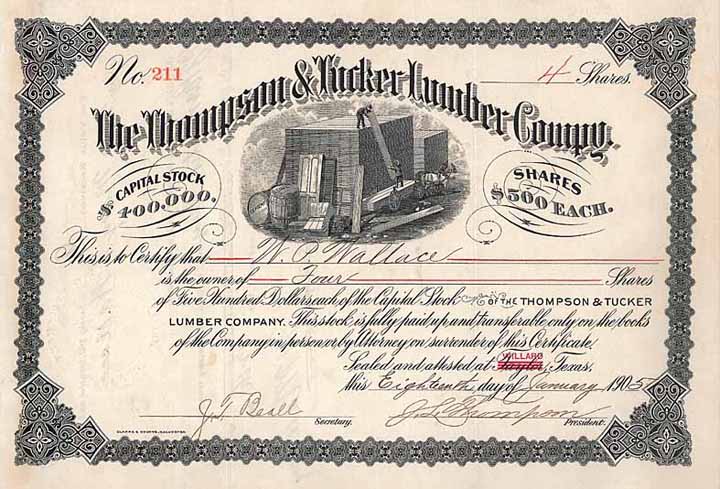 No. 211
4 Shares.
The Thompson & Tucker Lumber Compy.
CAPITAL STOCK
$ 400,000.
SHARES
$500 EACH.
This is to Certify that W. P. Wallace
is the owner of Four Shares
of Five Hundred Dollars each of the Capital Stock OF THE THOMPSON & TUCKER
LUMBER COMPANY. This stock is fully paid up and transferable only on the books
of the Company in person or by Attorney on surrender of this Certificate.
Sealed and attested at WILLARD, Texas.
this Eighteenth day of January 1905
J. T. Beall
Secretary.
J. L. Thompson
President.